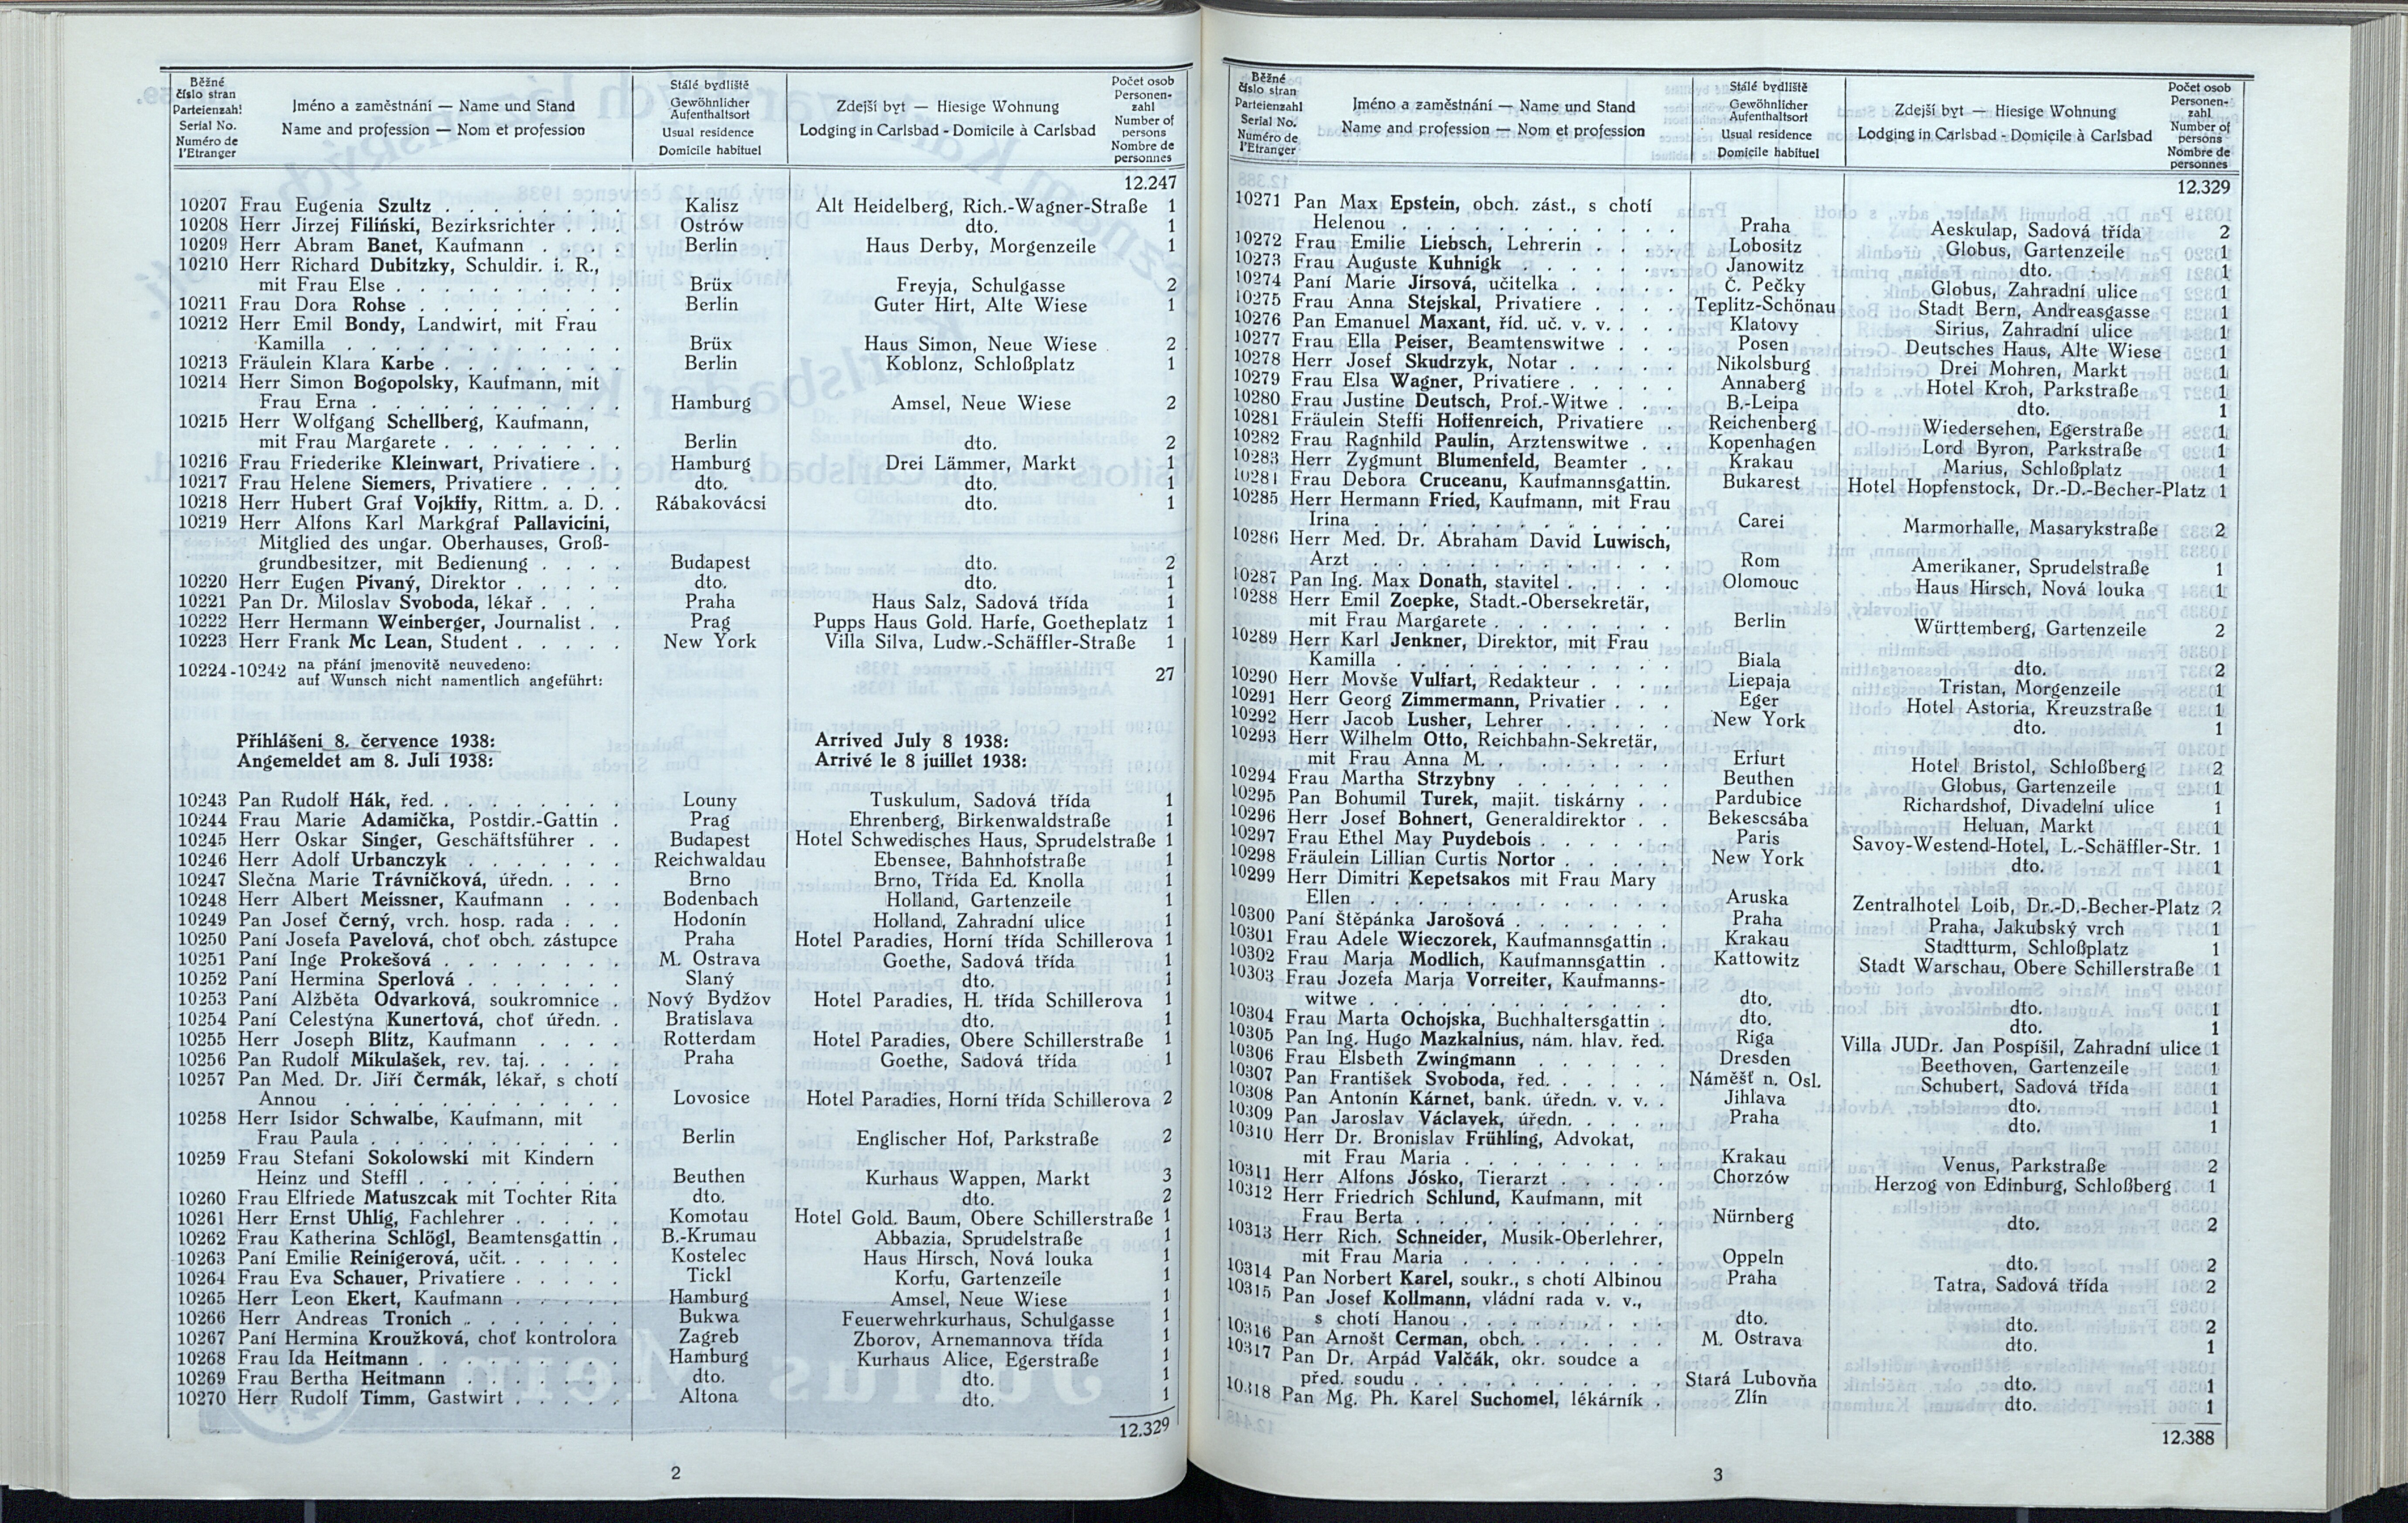 Běžné číslo stran Parteienzahl Serial No. Numéro de l'Etranger
Jméno a zaměstnání — Name und Stand
Name and profession — Nom et profession
Stálé bydliště Gewöhnlicher Aufenthaltsort Usual residence Domicile habituel
Zdejší byt — Hiesige Wohnung
Lodging in Carlsbad - Domicile à Carlsbad
Počet osob Personenzahl Number of persons Nombre de personnes
12.247
10207 Frau Eugenia Szultz Kalisz Alt Heidelberg, Rich.-Wagner-Straße 1
10208 Herr Jirzej Filiński, Bezirksrichter Ostrów dto. 1
10209 Herr Abram Banet, Kaufmann Berlin Haus Derby, Morgenzeile 1
10210 Herr Richard Dubitzky, Schuldir. i. R.,
mit Frau Else Brüx Freyja, Schulgasse 2
10211 Frau Dora Rohse Berlin Guter Hirt, Alte Wiese 1
10212 Herr Emil Bondy, Landwirt, mit Frau
Kamilla Brüx Haus Simon, Neue Wiese 2
10213 Fräulein Klara Karbe Berlin Koblonz, Schloßplatz 1
10214 Herr Simon Bogopolsky, Kaufmann, mit
Frau Erna Hamburg Amsel, Neue Wiese 2
10215 Herr Wolfgang Schellberg, Kaufmann,
mit Frau Margarete Berlin dto. 2
10216 Frau Friederike Kleinwart, Privatiere Hamburg Drei Lämmer, Markt 1
10217 Frau Helene Siemers, Privatiere dto. dto. 1
10218 Herr Hubert Graf Vojkffy, Rittm. a. D. Rábakovácsi dto. 1
10219 Herr Alfons Karl Markgraf Pallavicini,
Mitglied des ungar. Oberhauses, Groß-
grundbesitzer, mit Bedienung Budapest dto. 2
10220 Herr Eugen Pivaný, Direktor dto. dto. 1
10221 Pan Dr. Miloslav Svoboda, lékař Praha Haus Salz, Sadová třída 1
10222 Herr Hermann Weinberger, Journalist Prag Pupps Haus Gold. Harfe, Goetheplatz 1
10223 Herr Frank Mc Lean, Student New York Villa Silva, Ludw.-Schäffler-Straße 1
10224-10242 na přání jmenovitě neuvedeno:
auf Wunsch nicht namentlich angeführt: 27
Přihlášeni 8. července 1938: Arrived July 8 1938:
Angemeldet am 8. Juli 1938: Arrivé le 8 juillet 1938:
10243 Pan Rudolf Hák, řed. Louny Tuskulum, Sadová třída 1
10244 Frau Marie Adamička, Postdir.-Gattin Prag Ehrenberg, Birkenwaldstraße 1
10245 Herr Oskar Singer, Geschäftsführer Budapest Hotel Schwedisches Haus, Sprudelstraße 1
10246 Herr Adolf Urbanczyk Reichwaldau Ebensee, Bahnhofstraße 1
10247 Slečna Marie Trávničková, úředn. Brno Brno, Třída Ed. Knolla 1
10248 Herr Albert Meissner, Kaufmann Bodenbach Holland, Gartenzeile 1
10249 Pan Josef Černý, vrch. hosp. rada Hodonín Holland, Zahradní ulice 1
10250 Paní Josefa Pavelová, choť obch. zástupce Praha Hotel Paradies, Horní třída Schillerova 1
10251 Paní Inge Prokešová M. Ostrava Goethe, Sadová třída 1
10252 Paní Hermina Sperlová Slaný dto. 1
10253 Paní Alžběta Odvarková, soukromnice Nový Bydžov Hotel Paradies, H. třída Schillerova 1
10254 Paní Celestýna Kunertová, choť úředn. Bratislava dto. 1
10255 Herr Joseph Blitz, Kaufmann Rotterdam Hotel Paradies, Obere Schillerstraße 1
10256 Pan Rudolf Mikulašek, rev. taj. Praha Goethe, Sadová třída 1
10257 Pan Med. Dr. Jiří Čermák, lékař, s chotí
Annou Lovosice Hotel Paradies, Horní třída Schillerova 2
10258 Herr Isidor Schwalbe, Kaufmann, mit
Frau Paula Berlin Englischer Hof, Parkstraße 2
10259 Frau Stefani Sokolowski mit Kindern
Heinz und Steffl Beuthen Kurhaus Wappen, Markt 3
10260 Frau Elfriede Matuszcak mit Tochter Rita dto. dto. 2
10261 Herr Ernst Uhlig, Fachlehrer Komotau Hotel Gold. Baum, Obere Schillerstraße 1
10262 Frau Katherina Schlögl, Beamtensgattin B.-Krumau Abbazia, Sprudelstraße 1
10263 Paní Emilie Reinigerová, učit. Kostelec Haus Hirsch, Nová louka 1
10264 Frau Eva Schauer, Privatiere Tickl Korfu, Gartenzeile 1
10265 Herr Leon Ekert, Kaufmann Hamburg Amsel, Neue Wiese 1
10266 Herr Andreas Tronich Bukwa Feuerwehrkurhaus, Schulgasse 1
10267 Paní Hermina Kroužková, choť kontrolora Zagreb Zborov, Arnemannova třída 1
10268 Frau Ida Heitmann Hamburg Kurhaus Alice, Egerstraße 1
10269 Frau Bertha Heitmann dto. dto. 1
10270 Herr Rudolf Timm, Gastwirt Altona dto. 1
12.329
2
Běžné číslo stran Parteienzahl Serial No. Numéro de l'Etranger
Jméno a zaměstnání — Name und Stand
Name and profession — Nom et profession
Stálé bydliště Gewöhnlicher Aufenthaltsort Usual residence Domicile habituel
Zdejší byt — Hiesige Wohnung
Lodging in Carlsbad - Domicile à Carlsbad
Počet osob Personen-zahl Number of persons Nombre de personnes
12.329
10271 Pan Max Epstein, obch. zást., s chotí
Helenou Praha Aeskulap, Sadová třída 2
10272 Frau Emilie Liebsch, Lehrerin Lobositz Globus, Gartenzeile 1
10273 Frau Auguste Kuhnigk Janowitz dto. 1
10274 Paní Marie Jirsová, učitelka Č. Pečky Globus, Zahradní ulice 1
10275 Frau Anna Stejskal, Privatiere Teplitz-Schönau Stadt Bern, Andreasgasse 1
10276 Pan Emanuel Maxant, říd. uč. v. v. Klatovy Sirius, Zahradní ulice 1
10277 Frau Ella Peiser, Beamtenswitwe Posen Deutsches Haus, Alte Wiese 1
10278 Herr Josef Skudrzyk, Notar Nikolsburg Drei Mohren, Markt 1
10279 Frau Elsa Wagner, Privatiere Annaberg Hotel Kroh, Parkstraße 1
10280 Frau Justine Deutsch, Prof.-Witwe B.-Leipa dto. 1
10281 Fräulein Steffi Hoffenreich, Privatiere Reichenberg Wiedersehen, Egerstraße 1
10282 Frau Ragnhild Paulin, Arztenswitwe Kopenhagen Lord Byron, Parkstraße 1
10283 Herr Zygmunt Blumenfeld, Beamter Krakau Marius, Schloßplatz 1
10281 Frau Debora Cruceanu, Kaufmannsgattin. Bukarest Hotel Hopfenstock, Dr.-D.-Becher-Platz 1
10285 Herr Hermann Fried, Kaufmann, mit Frau
Irina Carei Marmorhalle, Masarykstraße 2
10286 Herr Med. Dr. Abraham David Luwisch,
Arzt Rom Amerikaner, Sprudelstraße 1
10287 Pan Ing. Max Donath, stavitel Olomouc Haus Hirsch, Nová louka 1
10288 Herr Emil Zoepke, Stadt.-Obersekretär,
mit Frau Margarete Berlin Württemberg, Gartenzeile 2
10289 Herr Karl Jenkner, Direktor, mit Frau
Kamilla Biala dto. 2
10290 Herr Movše Vulfart, Redakteur Liepaja Tristan, Morgenzeile 1
10291 Herr Georg Zimmermann, Privatier Eger Hotel Astoria, Kreuzstraße 1
10292 Herr Jacob Lusher, Lehrer New York dto. 1
10293 Herr Wilhelm Otto, Reichbahn-Sekretär,
mit Frau Anna M. Erfurt Hotel Bristol, Schloßberg 2
10294 Frau Martha Strzybny Beuthen Globus, Gartenzeile 1
10295 Pan Bohumil Turek, majit. tiskárny Pardubice Richardshof, Divadelní ulice 1
10296 Herr Josef Bohnert, Generaldirektor Bekescsába Heluan, Markt 1
10297 Frau Ethel May Puydebois Paris Savoy-Westend-Hotel, L.-Schäffler-Str. 1
10298 Fräulein Lillian Curtis Nortor New York dto. 1
10299 Herr Dimitri Kepetsakos mit Frau Mary
Ellen Aruska Zentralhotel Loib, Dr.-D.-Becher-Platz 2
10300 Paní Štěpánka Jarošová Praha Praha, Jakubský vrch 1
10301 Frau Adele Wieczorek, Kaufmannsgattin Krakau Stadtturm, Schloßplatz 1
10302 Frau Marja Modlich, Kaufmannsgattin Kattowitz Stadt Warschau, Obere Schillerstraße 1
10303 Frau Jozefa Marja Vorreiter, Kaufmanns-
witwe dto. dto. 1
10304 Frau Marta Ochojska, Buchhaltersgattin dto. dto. 1
10305 Pan Ing. Hugo Mazkalnius, nám. hlav. řed. Riga Villa JUDr. Jan Pospíšil, Zahradní ulice 1
10306 Frau Elsbeth Zwingmann Dresden Beethoven, Gartenzeile 1
10307 Pan František Svoboda, řed. Náměšť n. Osl. Schubert, Sadová třída 1
10308 Pan Antonín Kárnet, bank. úředn. v. v. Jihlava dto. 1
10309 Pan Jaroslav Václavek, úředn. Praha dto. 1
10310 Herr Dr. Bronislav Frühling, Advokat,
mit Frau Maria Krakau Venus, Parkstraße 2
10311 Herr Alfons Jósko, Tierarzt Chorzów Herzog von Edinburg, Schloßberg 1
10312 Herr Friedrich Schlund, Kaufmann, mit
Frau Berta Nürnberg dto. 2
10313 Herr Rich. Schneider, Musik-Oberlehrer,
mit Frau Maria Oppeln dto. 2
10314 Pan Norbert Karel, soukr., s chotí Albinou Praha Tatra, Sadová třída 2
10315 Pan Josef Kollmann, vládní rada v. v.,
s chotí Hanou dto. dto. 2
10316 Pan Arnošt Cerman, obch. M. Ostrava dto. 1
10317 Pan Dr. Arpád Valčák, okr. soudce a
před. soudu Stará Lubovňa dto. 1
10318 Pan Mg. Ph. Karel Suchomel, lékárník Zlín dto. 1
12.388
3